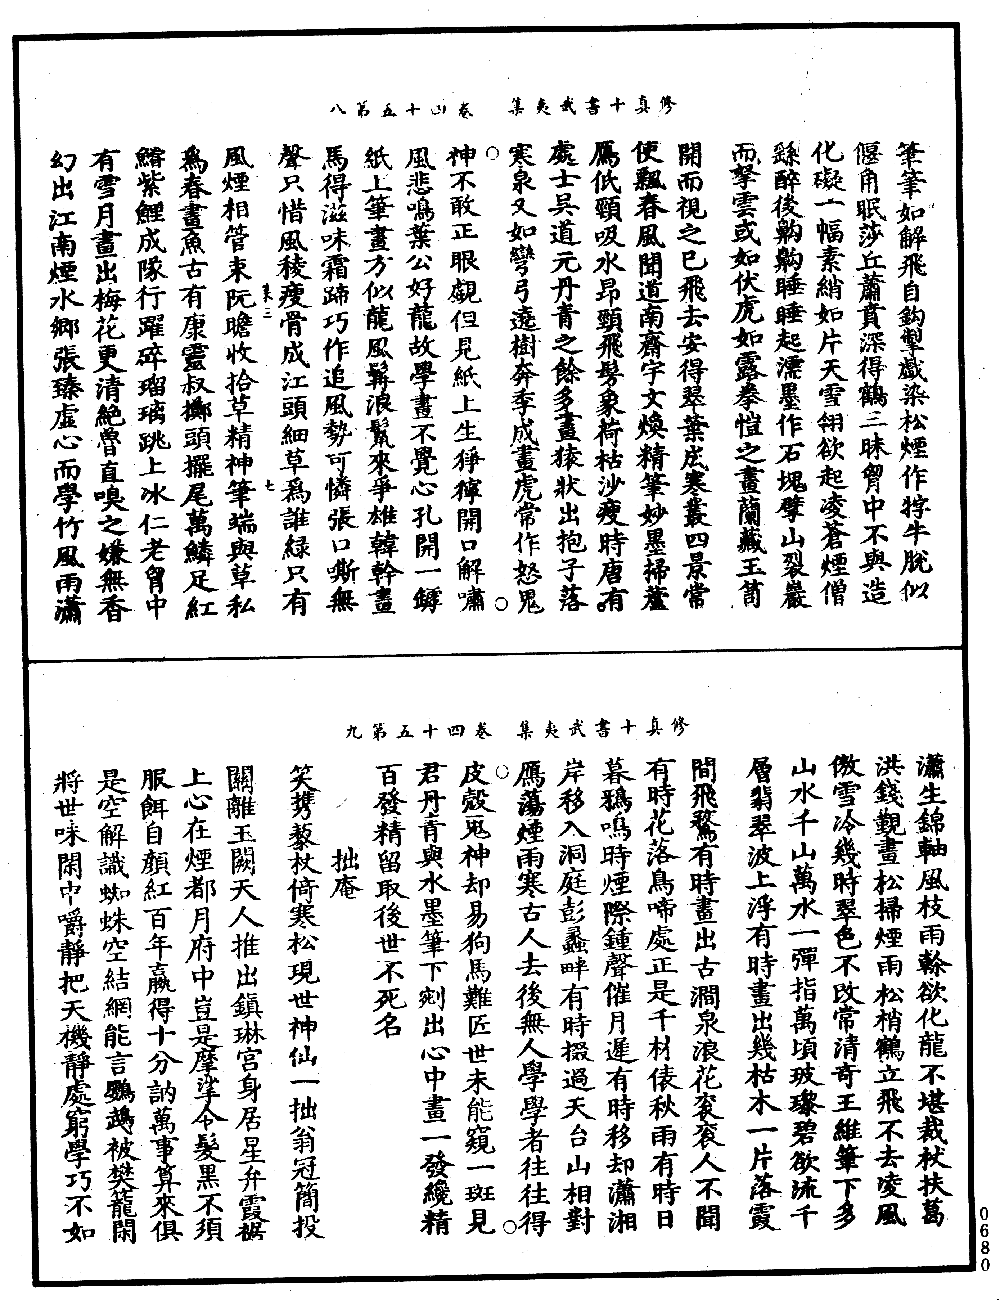 修真十書武夷集　卷四十五第八
筆筆如解飛自鈎掣戲染松煙作牸牛脫似
偃角眠莎丘蕭賁深得鶴三昧胷中不與造
化礙一幅素綃如片天雪翎欲起凌蒼煙僧
繇醉後齁齁睡睡起濡墨作石塊擘山裂巖
而拏雲或如伏虎如露拳愷之畫蘭藏玉笥
開而視之已飛去安得翠葉底寒叢四景常
使飄春風聞道南齋宇文煥精筆妙墨掃蘆
鴈低頸吸水昂頸飛髣象荷枯沙瘦時唐有
處士吳道元丹青之餘多畫猿狀出抱子落
寒泉又如彎弓遶樹奔季成畫虎常作怒鬼
神不敢正眼覷但見紙上生猙獰開口解嘯
風悲鳴葉公好龍故學畫不覺心孔開一鏬
紙上筆畫方似龍風髯浪鬣來爭雄韓幹畫
馬得滋味霜蹄巧作追風勢可憐張口嘶無
聲只惜風稜瘦骨成江頭細草爲誰緑只有
風煙相管束阮瞻收拾草精神筆端與草私
爲春畫魚古有康靈叔擲頭擺尾萬鱗足紅
鰭紫鯉成隊行躍碎瑠璃跳上冰仁老胷中
有雪月畫出梅花更清絶曾直嗅之嫌無香
幻出江南煙水鄉張臻虛心而學竹風雨瀟
修真十書武夷集　卷四十五第九
瀟生錦軸風枝雨榦欲化龍不堪裁杖扶葛
洪錢觀畫松掃煙雨松梢鶴立飛不去凌風
傲雪冷幾時翠色不改常清奇王維筆下多
山水千山萬水一彈指萬頃玻瓈碧欲流千
層翡翠波上浮有時畫出幾枯木一片落霞
間飛鶩有時畫出古澗泉浪花衮衮人不聞
有時花落鳥啼處正是千材俵秋雨有時日
暮鴉鳴時煙際鍾聲催月遲有時移却瀟湘
岸移入洞庭彭蠡畔有時掇過天台山相對
鴈蕩煙雨寒古人去後無人學學者往往得
皮殼鬼神却易狗馬難匠世未能窺一斑見
君丹青與水墨筆下剜出心中畫一發纔精
百發精留取後世不死名
拙庵
笑携藜杖倚寒松現世神仙一拙翁冠簡投
閑離玉闕天人推出鎮琳宮身居星弁霞裾
上心在煙都月府中豈是摩挲令髮黑不須
服餌自顏紅百年贏得十分訥萬事算來俱
是空解識蜘蛛空結網能言鸚鵡被樊籠閑
將世味閑中嚼靜把天機靜處窮學巧不如
0680